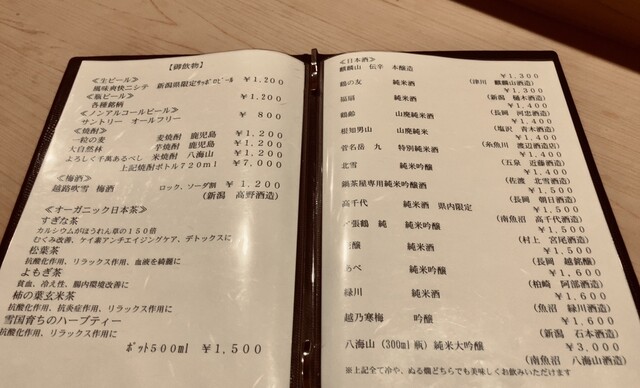 【御飲物】
≪生ビール≫
風味爽快ニシテ 新潟県限定ｻｯﾎﾟﾛﾋﾞｰﾙ ￥1,200
≪瓶ビール≫
各種銘柄 ￥1,200
≪ノンアルコールビール≫
サントリー オールフリー ￥ 800
≪焼酎≫
一粒の麦 麦焼酎 鹿児島 ￥1,200
大自然林 芋焼酎 鹿児島 ￥1,200
よろしく千萬あるべし 米焼酎 八海山 ￥1,200
上記焼酎ボトル720ml ￥7,000
≪梅酒≫
越路吹雪 梅酒 ロック、ソーダ割 ￥1,200
(新潟 高野酒造)
≪オーガニック日本茶≫
すぎな茶
カルシウムがほうれん草の150倍
むくみ改善、ケイ素アンチエイジングケア、デトックスに
松葉茶
抗酸化作用、リラックス作用、血液を綺麗に
よもぎ茶
貧血、冷え性、腸内環境改善に
柿の葉玄米茶
抗酸化作用、抗炎症作用、リラックスに
雪国育ちのハーブティー
抗酸化作用、リラックス作用に
ﾎﾟｯﾄ500ml ￥1,500
≪日本酒≫
麒麟山 伝辛 本醸造 ￥1,300
(津川 麒麟山酒造)
鶴の友 純米酒 ￥1,300
(新潟 樋木酒造)
福扇 純米酒 ￥1,400
(長岡 河忠酒造)
鶴齢 山廃純米酒 ￥1,400
(塩沢 青木酒造)
根知男山 山廃純米 ￥1,400
(糸魚川 渡辺酒造店)
菅名岳 九 特別純米酒 ￥1,400
(五泉 近藤酒造)
北雪 純米吟醸 ￥1,400
(佐渡 北雪酒造)
鍋茶屋専用純米吟醸酒 ￥1,500
(長岡 朝日酒造)
高千代 純米酒 県内限定 ￥1,500
(南魚沼 高千代酒造)
張鶴 純 純米吟醸 ￥1,500
(村上 宮尾酒造)
醸 純米酒 ￥1,500
(長岡 越銘醸)
あべ 純米吟醸 ￥1,600
(柏崎 阿部酒造)
緑川 純米酒 ￥1,600
(魚沼 緑川酒造)
越乃寒梅 吟醸 ￥1,600
(新潟 石本酒造)
八海山 (300ml瓶) 純米大吟醸 ￥3,000
(南魚沼 八海山酒造)
※上記全て冷や、ぬる燗どちらでも美味しくお飲みいただけます